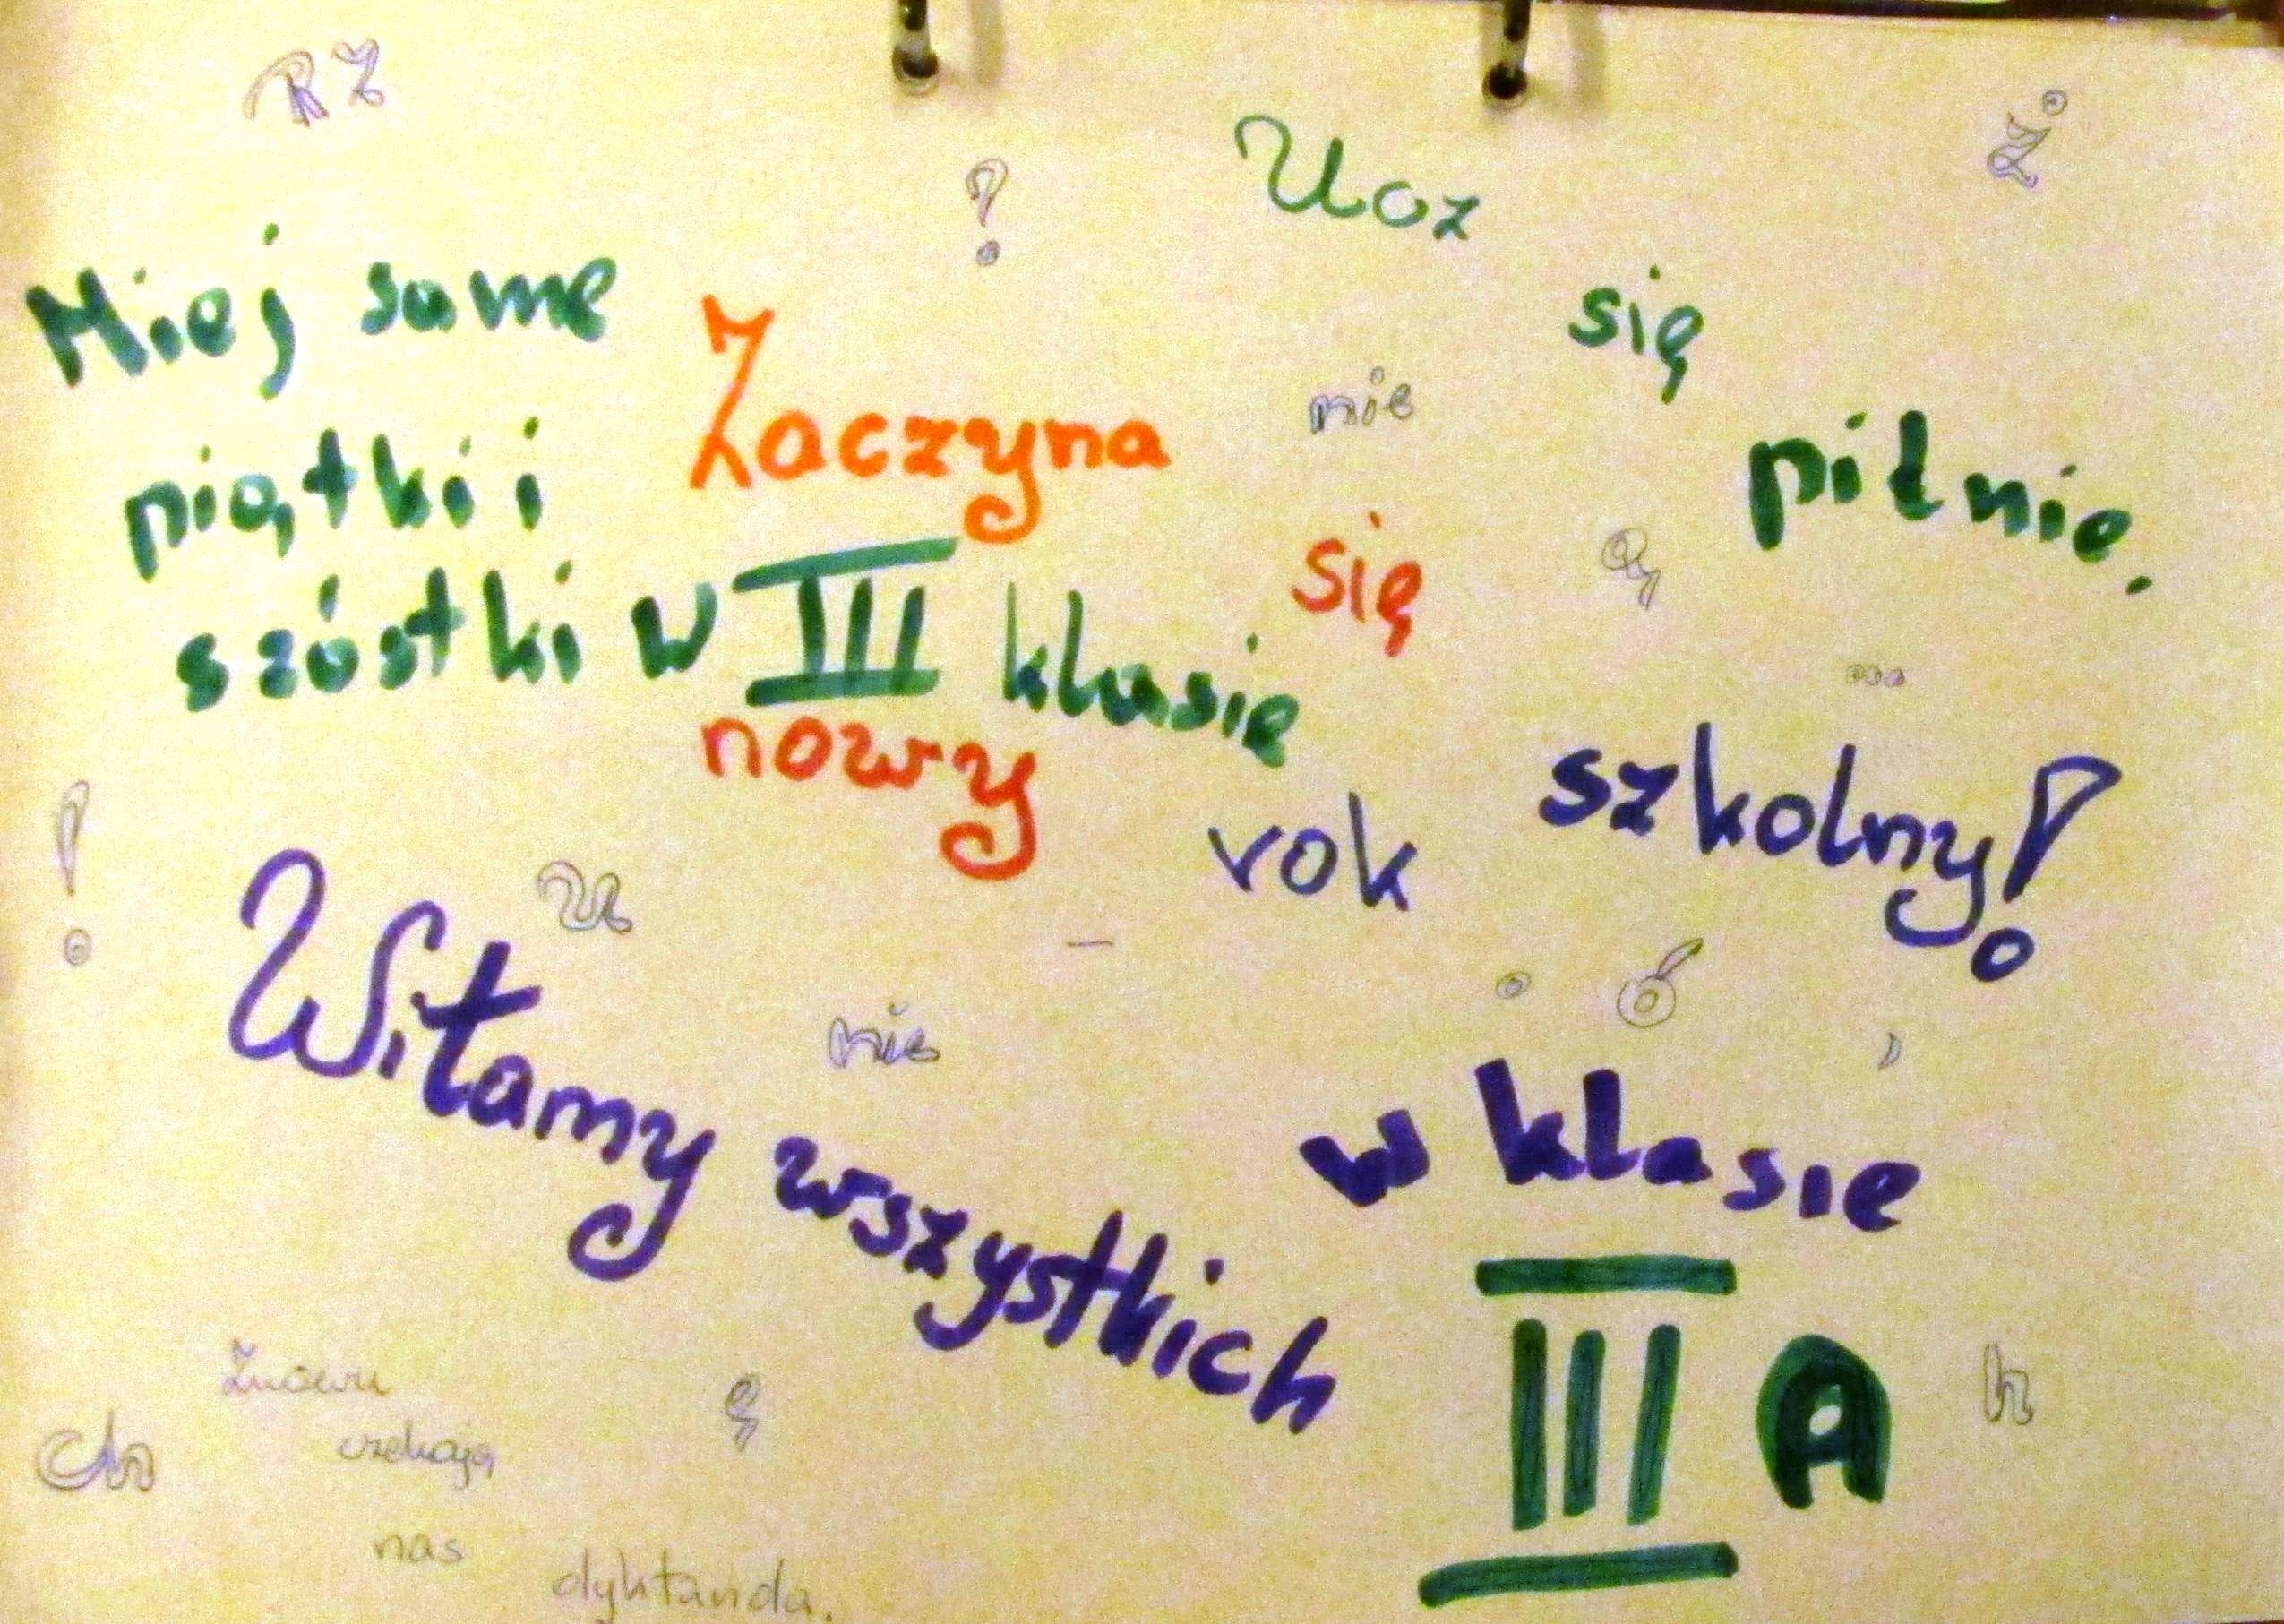 RZ
Ż
?
Ucz
się
pilnie.
Miej same
piątki i
szóstki w III klasie
Zaczyna
się
nowy
rok
szkolny!
nie
ą
...
!
u
-
nie
. ó
,
Witamy wszystkich
w klasie
III A
h
ę
Ch
Znowu
czekają
nas
dyktanda.